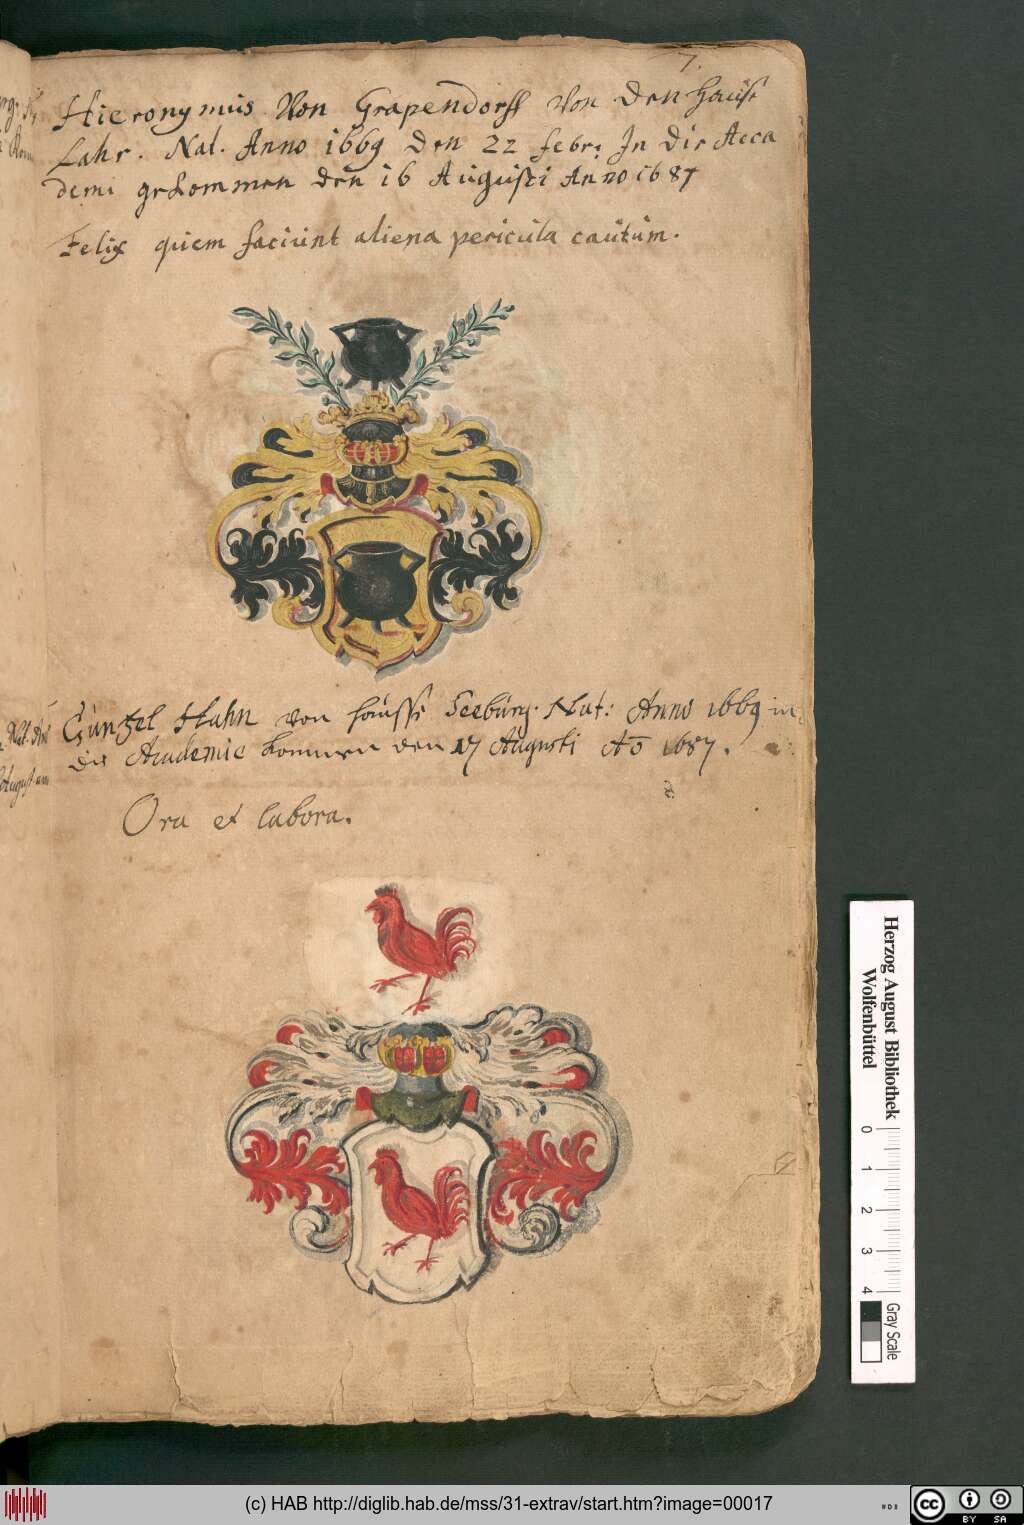 7.
Hieronymus Von Grapendorff Von den Hause
Lahr. Nat. Anno 1669 den 22 febr: In die Acca
demi gekommen den 16 Augusti Anno 1687
Felix quem faciunt aliena pericula cautum.
Güntzel Hahn von hausse Seeburg. Nat: Anno 1669 in
die Academie kommen den 17 Augusti Aō 1687.
Ora et labora.
Herzog August Bibliothek
Wolfenbüttel
0 1 2 3 4
Gray Scale
(c) HAB http://diglib.hab.de/mss/31-extrav/start.htm?image=00017
cc BY SA